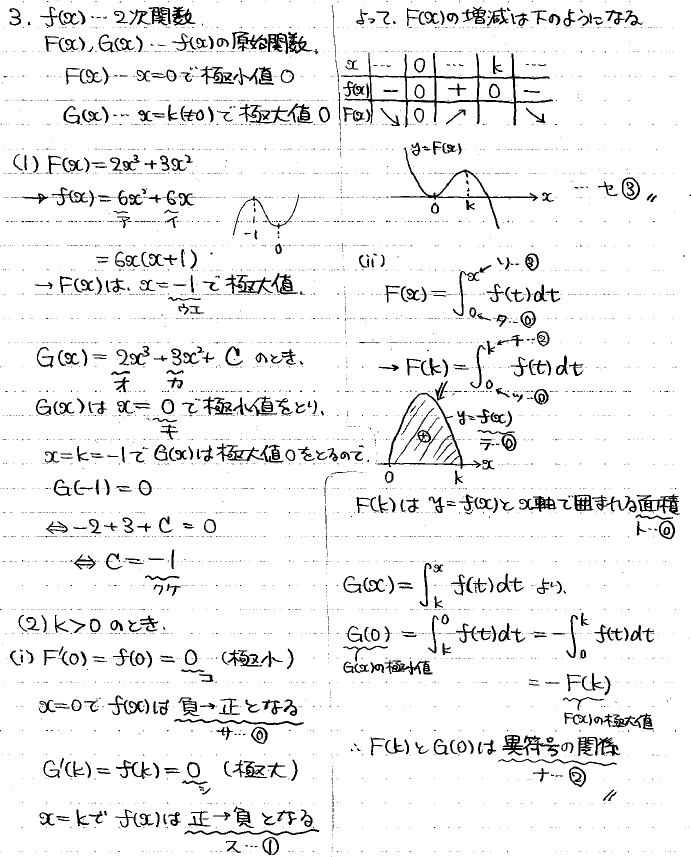 3. f(x)…2次関数
F(x), G(x)…f(x)の原始関数.
F(x)…x=0で極小値0
G(x)…x=k(≠0)で極大値0
(1) F(x)=2x³+3x²
→ f(x)=6x²+6x
ア イ
-1
0
=6x(x+1)
→ F(x)は、x=-1で極大値.
ウエ
G(x)=2x³+3x²+C のとき、
オ カ
G(x)は x=0で極小値をとり、
キ
x=k=-1でG(x)は極大値0をとるので、
G(-1)=0
⇔ -2+3+C=0
⇔ C=-1
クケ
(2) k>0 のとき、
(i) F'(0)=f(0)=0 (極小)
コ
x=0で f(x)は 負→正となる
サ…⓪
G'(k)=f(k)=0 (極大)
シ
x=kで f(x)は 正→負となる
ス…①
よって、F(x)の増減は下のようになる
x … 0 … k …
f(x) − 0 + 0 −
F(x) ↘ 0 ↗ ↘
y=F(x)
0 k x
…セ③〃
(ii)
F(x)=∫₀ˣ f(t)dt
ソ…③
タ…⓪
→ F(k)=∫₀ᵏ f(t)dt
チ…②
ツ…⓪
y=f(x)
テ…⓪
⊕
0 k x
F(k)は y=f(x)とx軸で囲まれる面積
ト…⓪
G(x)=∫ₖˣ f(t)dt より、
G(0)=∫ₖ⁰ f(t)dt=-∫₀ᵏ f(t)dt
G(x)の極小値
=-F(k)
F(x)の極大値
∴ F(k)とG(0)は異符号の関係
ナ…②
〃